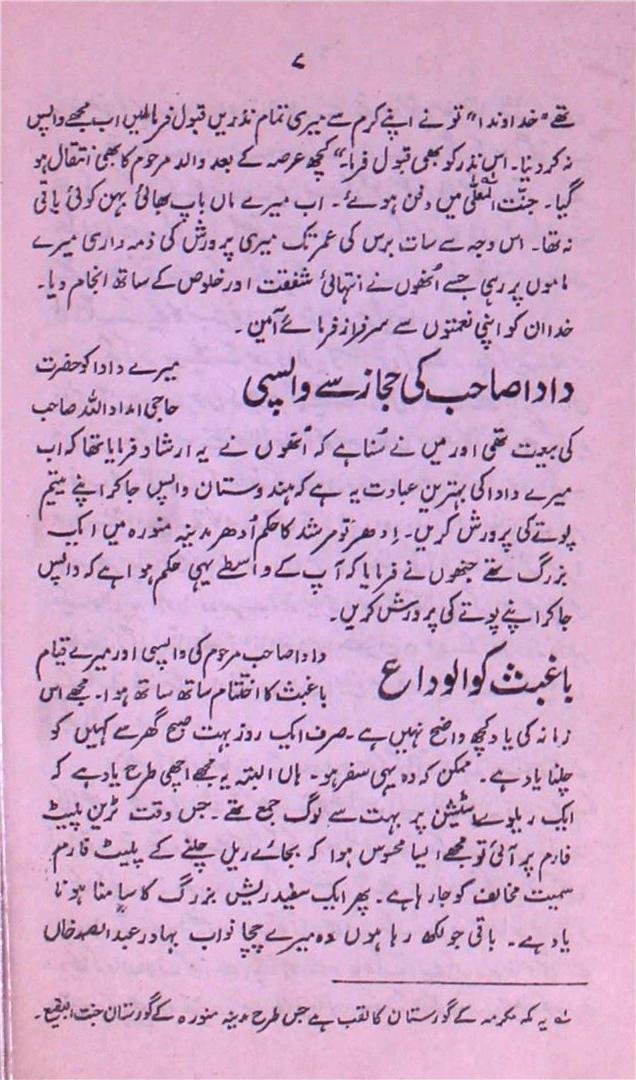 ۷
تھے "خداوندا" تو نے اپنے کرم سے میری تمام نذریں قبول فرمالیں اب مجھے واپس
نہ کر دنیا۔ اس نذر کو بھی قبول فرما۔" کچھ عرصہ کے بعد والد مرحوم کا بھی انتقال ہو
گیا۔ جنت المعلّٰی میں دفن ہوئے۔ اب میرے ماں باپ بھائی بہن کوئی باقی
نہ تھا۔ اس وجہ سے سات برس کی عمر تک میری پرورش کی ذمہ داری میرے
ماموں پر رہی جسے اُنھوں نے انتہائی شفقت اور خلوص کے ساتھ انجام دیا۔
خدا ان کو اپنی نعمتوں سے سرفراز فرمائے آمین۔
دادا صاحب کی حجاز سے واپسی
میرے دادا کو حضرت
حاجی امداد اللہ صاحب
کی بیعت تھی اور میں نے سُنا ہے کہ اُنھوں نے یہ ارشاد فرمایا تھا کہ اب
میرے دادا کی بہترین عبادت یہ ہے کہ ہندوستان واپس جا کر اپنے یتیم
پوتے کی پرورش کریں۔ اِدھر تو مرشد کا حکم اُدھر مدینہ منورہ میں ایک
بزرگ تھے جنھوں نے فرمایا کہ آپ کے واسطے یہی حکم ہوا ہے کہ واپس
جا کر اپنے پوتے کی پرورش کریں۔
باغبث کو الوداع
دادا صاحب مرحوم کی واپسی اور میرے قیام
باغبث کا اختتام ساتھ ساتھ ہوا۔ مجھے اس
زمانہ کی یاد کچھ واضح نہیں ہے۔ صرف ایک روز بہت صبح گھر سے کہیں کو
چلنا یاد ہے۔ ممکن کہ وہ یہی سفر ہو۔ ہاں البتہ یہ مجھے اچھی طرح یاد ہے کہ
ایک ریلوے اسٹیشن پر بہت سے لوگ جمع تھے۔ جس وقت ٹرین پلیٹ
فارم پر آئی تو مجھے ایسا محسوس ہوا کہ بجائے ریل چلنے کے پلیٹ فارم
سمیت مخالف کو جا رہا ہے۔ پھر ایک سفید ریش بزرگ کا سامنا ہونا
یاد ہے۔ باقی جو لکھ رہا ہوں وہ میرے چچا نواب بہادر عبدالصمد خاں
لہ یہ مکہ مکرمہ کے گورستان کا لقب ہے جس طرح مدینہ منورہ کے گورستان جنت البقیع۔